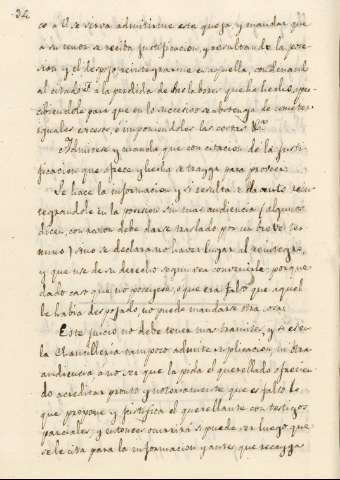 32
co a V. se sirva admitirme esta queja y mandar que
a su tenor se reciba justificacion, y resultando la pose-
sion y el despojo reintegrarme en aquella, condenand
al citado a la perdida de las labores que ha hecho, aper-
cibiendole para que en lo sucesivo se abstenga de cometer
iguales excesos, e imponiendoles las costas &a.
Admitese y manda que con citacion de la justi-
ficacion que ofrece y hecha se trayga para proveer.
Se hace la informacion y si resulta de auto rein-
tegrandole en la posesion sin mas audiencia (algunos
dicen, con razon debe darse traslado por un breve ter-
mino) sino se declara no haver lugar al reintegro,
y que use de su derecho segun sea conveniente, porque
dado caso que no poseyese, o que era falso que aquel
le habia despojado, no puede mandarse otra cosa.
Este juicio no debe tener mas tramites, y si es en
la Chancilleria tampoco admite suplicacion, ni otra
audiencia a no ser que la pida el querellado ofrecien-
do acreditar pronto y notoriamente que es falso lo
que propone y justifica el querellante con testigos
parciales; y entonces ocurrirá si puede ser luego que
se le cita para la informacion y antes que recayga